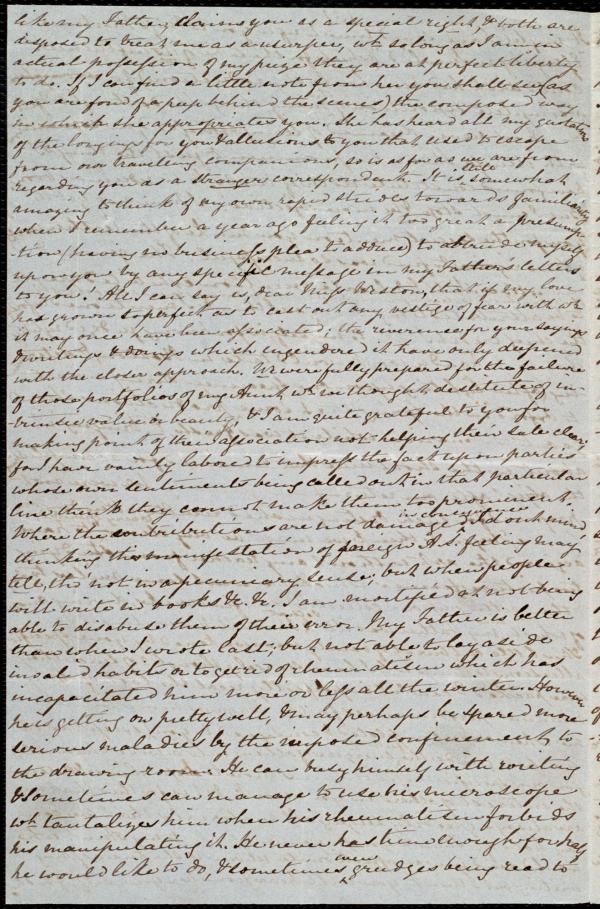 like my Father, claims you as a special right, & both are
disposed to treat me as a usurper, wh: so long as I am in
actual possession of my prize they are at perfect liberty
to do. If I can find a little note from her you shall see (as
you are fond of a peep behind the scenes) the composed way
in which she appropriates you. She has heard all my quotations
of the longings for you & allusions to you that used to escape
from our traveling companions, so is as far as we are from
regarding you as a stranger correspondent. It is still somewhat
amazing to think of my own rapid strides towards familiarity
when I remember a year ago feeling it too great a presump-
tion (having no business plea to adduce) to obtrude myself
upon you by any specific message in my Father's letters
to you! All I can say is, dear Miss Weston, that if my love
has grown so perfect as to cast out any vestige of fear with wh:
it may once have been associated; the reverence for your sayings
& writings & doings which engendered it have only deepened
with the closer approach. We were fully prepared for the failure
of those portfolios of my Aunt, wh: we thought destitute of in-
-trinsic value or beauty, & I am quite grateful to you for
making point of their association not helping their sale clear,
for I have vainly labored to impress the fact upon parties
whose own sentiments being called out in that particular
line think they cannot make them too prominent.
Where the contributions are not damaged in consequence I do not mind,
thinking this manifestation of foreign A. S. feeling may
tell, tho' not in a pecuniary sense; but when people
will write in books &c. &c. I am mortified at not being
able to disabuse them of their error. My Father is better
than when I wrote last; but not able to lay aside
invalid habits or to get rid of rheumatism which has
incapacitated him more or less all the winter. However
he is getting on pretty well, & may perhaps be spared more
serious maladies by the imposed confinement to
the drawing room. He can busy himself with writing
& sometimes can manage to use his microscope
wh: tantalizes him when his rheumatism forbids
his manipulating it. He never has time enough for half
he would like to do, & sometimes even grudges being read to